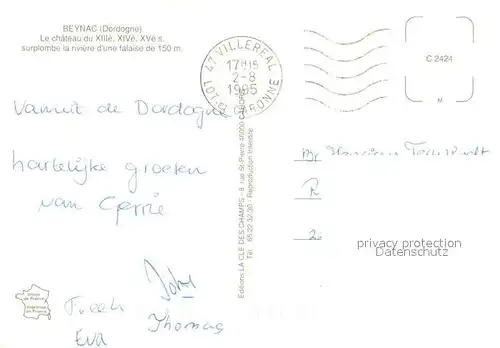 BEYNAC (Dordogne)
Le château du XIIIè, XIVè, XVè s.
surplombe la rivière d'une falaise de 150 m.
47 VILLEREAL
17H15
2-8
1995
LOT-ET-GARONNE
C 2424
M
Vanuit de Dordogne
hartelijke groeten
van Gerrie
John
Freek
Thomas
Eva
Editions LA CLE DES CHAMPS - 8, rue St-Pierre 46000 CAHORS
Tél. 65 22 32 30 - Reproduction interdite
R
2
privacy protection
Datenschutz